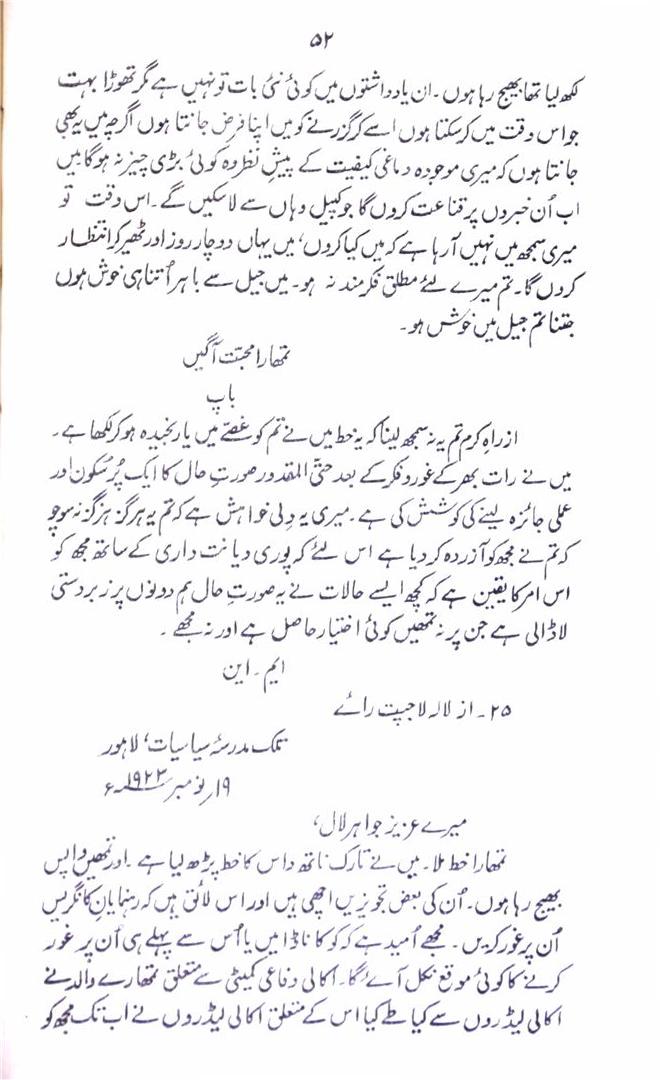 ۵۲
لکھ لیا تھا بھیج رہا ہوں۔ ان یادداشتوں میں کوئی نئی بات تو نہیں ہے مگر تھوڑا بہت
جو اس وقت میں کر سکتا ہوں اسے کر گزرنے کو میں اپنا فرض جانتا ہوں اگرچہ میں یہ بھی
جانتا ہوں کہ میری موجودہ دماغی کیفیت کے پیشِ نظر وہ کوئی بڑی چیز نہ ہوگا میں
اب اُن خبروں پر قناعت کروں گا جو کپیل وہاں سے لا سکیں گے۔ اس وقت تو
میری سمجھ میں نہیں آ رہا ہے کہ میں کیا کروں، میں یہاں دو چار روز اور ٹھیر کر انتظار
کروں گا۔ تم میرے لئے مطلق فکرمند نہ ہو۔ میں جیل سے باہر اُتنا ہی خوش ہوں
جتنا تم جیل میں خوش ہو۔
تمھارا محبت آگیں
باپ
از راہِ کرم تم یہ نہ سمجھ لینا کہ یہ خط میں نے تم کو غصّے میں یا رنجیدہ ہو کر لکھا ہے۔
میں نے رات بھر کے غور و فکر کے بعد حتّی المقدور صورتِ حال کا ایک پُر سکون اور
عملی جائزہ لینے کی کوشش کی ہے۔ میری یہ دلی خواہش ہے کہ تم یہ ہرگز ہرگز نہ سوچو
کہ تم نے مجھ کو آزردہ کر دیا ہے اس لئے کہ پوری دیانت داری کے ساتھ مجھ کو
اس امر کا یقین ہے کہ کچھ ایسے حالات نے یہ صورتِ حال ہم دونوں پر زبردستی
لا ڈالی ہے جن پر نہ تمھیں کوئی اختیار حاصل ہے اور نہ مجھے۔
ایم۔ این
۲۵۔ از لالہ لاجپت رائے
تلک مدرسۂ سیاسیات، لاہور
۱۹؍ نومبر ۱۹۲۳ء
میرے عزیز جواہر لال،
تمھارا خط ملا۔ میں نے تارک ناتھ داس کا خط پڑھ لیا ہے۔ اور تمھیں واپس
بھیج رہا ہوں۔ اُن کی بعض تجویزیں اچھی ہیں اور اس لائق ہیں کہ رہنمایانِ کانگریس
اُن پر غور کریں۔ مجھے اُمید ہے کہ کوکاناڈا میں یا اُس سے پہلے ہی اُن پر غور
کرنے کا کوئی موقع نکل آئے گا۔ اکالی دفاعی کمیٹی سے متعلق تمھارے والد نے
اکالی لیڈروں سے کیا طے کیا اس کے متعلق اکالی لیڈروں نے اب تک مجھ کو